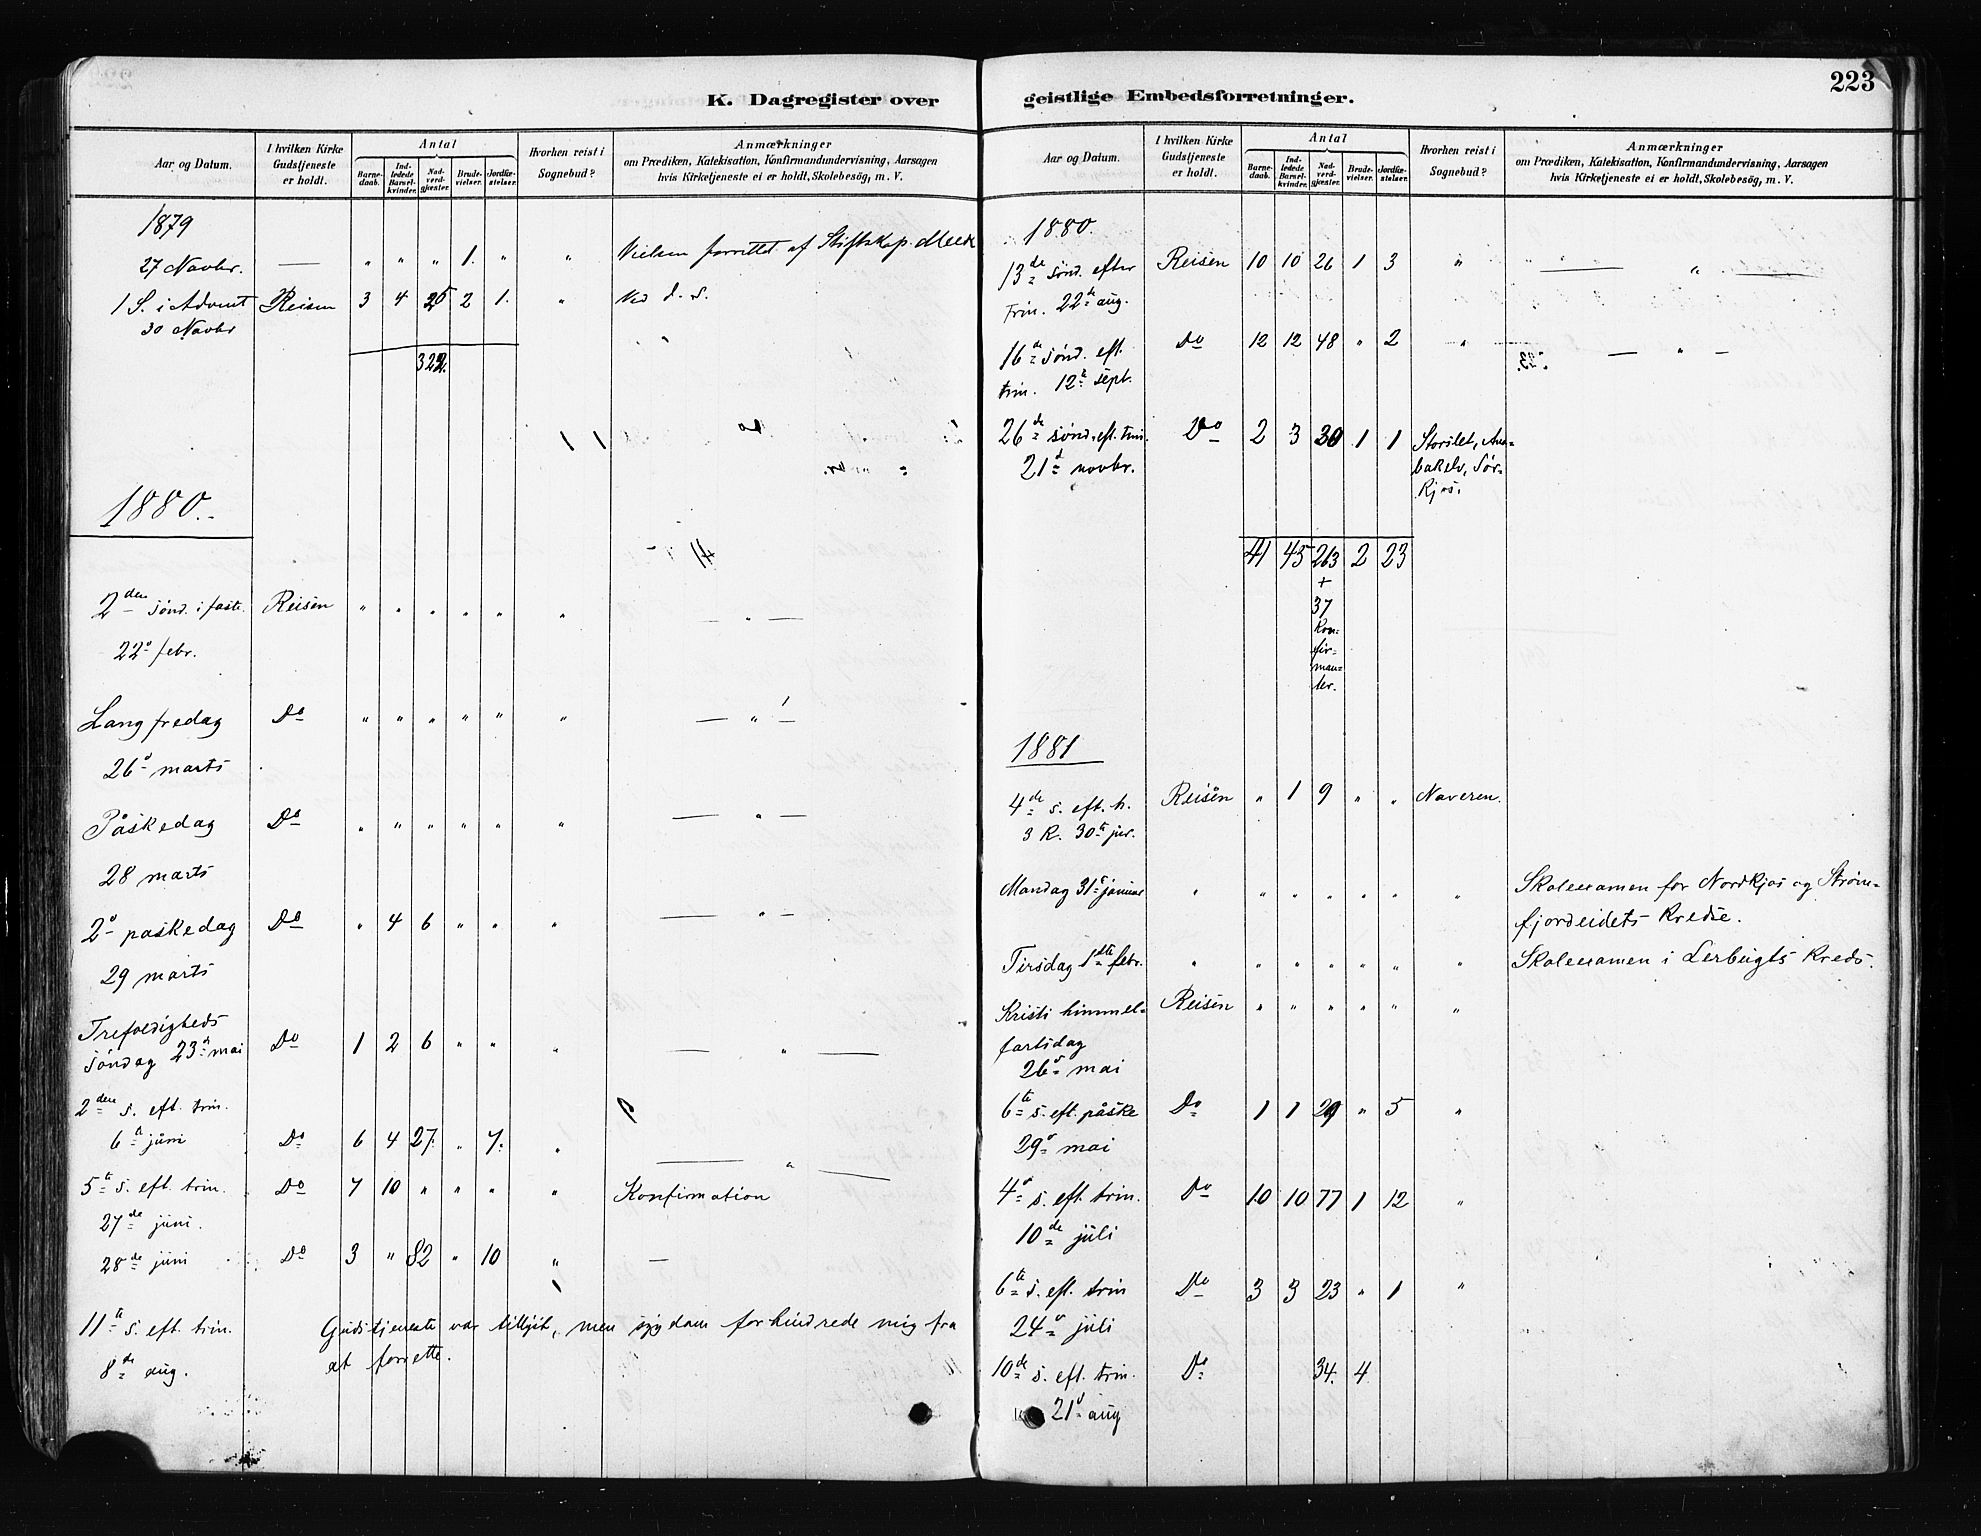 K. Dagregister over
Aar og Datum.
I hvilken Kirke Gudstjeneste er holdt.
Antal
Barnedaab.
Indledede Barselkvinder.
Nadverdgjester.
Brudevielser.
Jordfæstelser.
Hvorhen reist i Sognebud?
Anmærkninger
om Prædiken, Katekisation, Konfirmandundervisning, Aarsagen
hvis Kirketjeneste ei er holdt, Skolebesög, m. V.
1879
27 Novbr. — " " " 1. " " Vielsen forrettet af Stiftskap.
1 S. i Advent Reisen 3 4 25 2 1. " Ved d. s.
30 Novbr
322.
1880.
2den sønd. i faste. Reisen " " " " " " — " —
22d febr.
Langfredag Do " " " " " " — " —
26d marts
Påskedag Do " " " " " " — " —
28 marts
2d paskedag Do " 4 6 " " " — " —
29 marts
Trefoldigheds
søndag 23d mai Do 1 2 6 " " " — " —
2den s. eft. trin.
6te juni Do 6 4 27. " 7. " — " —
5te s. eft. trin. Do 7 10 " " " " Konfirmation
27de juni.
28de juni Do 3 " 82 " 10 " —
11te s. eft. trin. Gudstjeneste var tillyst, men sygdom forhindrede mig fra
8de aug. at forrette.
223
geistlige Embedsforretninger.
Aar og Datum.
I hvilken Kirke Gudstjeneste er holdt.
Antal
Barnedaab.
Indledede Barselkvinder.
Nadverdgjester.
Brudevielser.
Jordfæstelser.
Hvorhen reist i Sognebud?
Anmærkninger
om Prædiken, Katekisation, Konfirmandundervisning, Aarsagen
hvis Kirketjeneste ei er holdt, Skolebesög, m. V.
1880.
13de sønd. efter Reisen 10 10 26 1 3 " — " —
Trin. 22de aug.
16de sønd. eft. Do 12 12 48 " 2 " — " —
trin. 12te sept.
26de sønd. eft. trin. Do 2 3 30 1 1 Storslet,
21d novbr. bakelv, Sør-
kjos.
41 45 263 2 23
+
37
Kon-
fir-
man-
der.
1881
4de s. eft. h. Reisen " 1 9 " " Naveren.
3 K. 30te jnr.
Mandag 31te januar " " " " " " " Skoleexamen for Nordkjos og Strøm-
fjordeidets kredse.
Tirsdag 1ste febr. " " " " " " " Skoleexamen i Lerbugts kreds.
Kristi himmel- Reisen " " " " " "
fartsdag
26d mai
6te s. eft. påske Do 1 1 29 " 5 "
29d mai
4d s. eft. trin. Do 10 10 77 1 12 "
10de juli
6te s. eft. trin Do 3 3 23 " 1 "
24d juli
10de s. eft. trin. Do 34. 4
21d aug